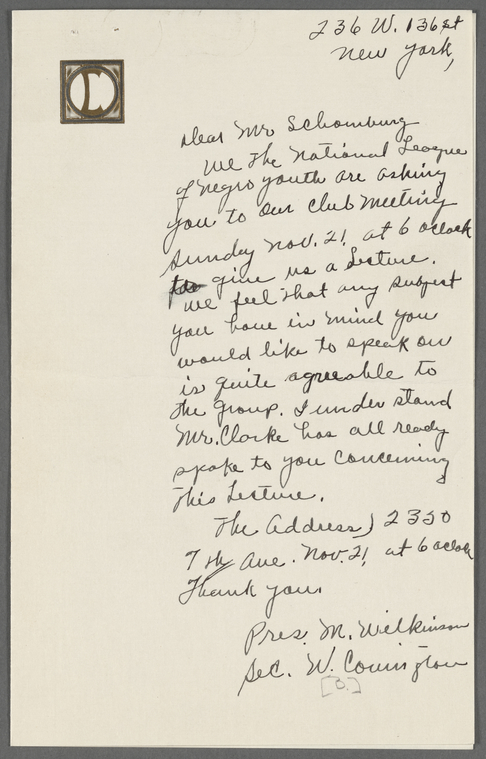 236 W. 136 st
New York,
L
Dear Mr Schomburg
We the National League
of Negro youth are asking
you to our club meeting
Sunday Nov. 21, at 6 oclock
to give us a Lecture.
We feel that any subject
you have in mind you
would like to speak on
is quite agreeable to
the group. I under stand
Mr. Clarke has all ready
spoke to you concerning
this Lecture.
The Address) 2350
7th Ave. Nov. 21, at 6 oclock
Thank you.
Pres. M. Wilkinson
Sec. W. Covington